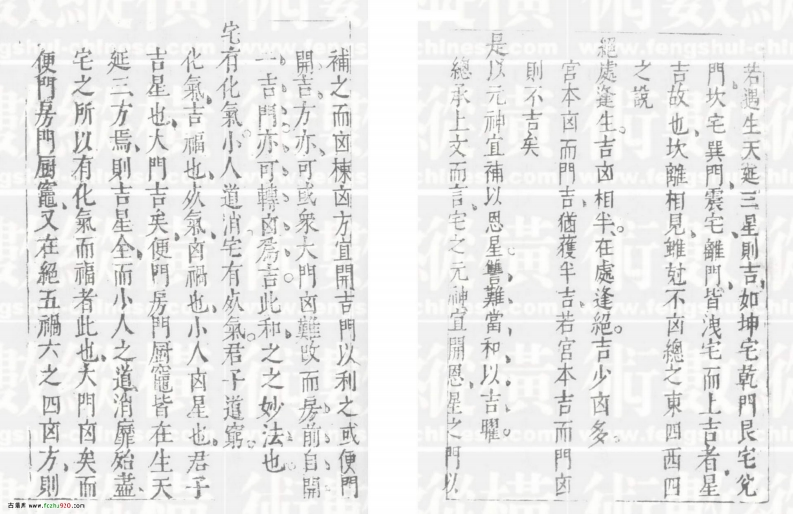 若遇生天延三星則吉如坤宅乾門艮宅兊
門坎宅巽門震宅離門皆洩宅而上吉者星
吉故也坎離相見雖尅不凶總之東四西四
之說
絕處逢生吉凶相半在處逢絕吉少凶多
宮本凶而門吉猶獲半吉若宮本吉而門凶
則不吉矣
是以元神宜補以恩星讐難當和以吉曜
總承上文而言宅之元神宜開恩星之門以
補之而凶棟凶方宜開吉門以利之或便門
開吉方亦可或衆大門凶難改而房前自開
一吉門亦可轉凶爲吉此和之之妙法也
宅有化氣小人道消宅有炊氣君子道窮
化氣吉福也炊氣凶禍也小人凶星也君子
吉星也大門吉矣便門房門厨竈皆在生天
延三方焉則吉星全而小人之道消靡殆盡
宅之所以有化氣而福者此也大門凶矣而
便門房門厨竈又在絕五禍六之四凶方則
古易界 www.fczhu920.com